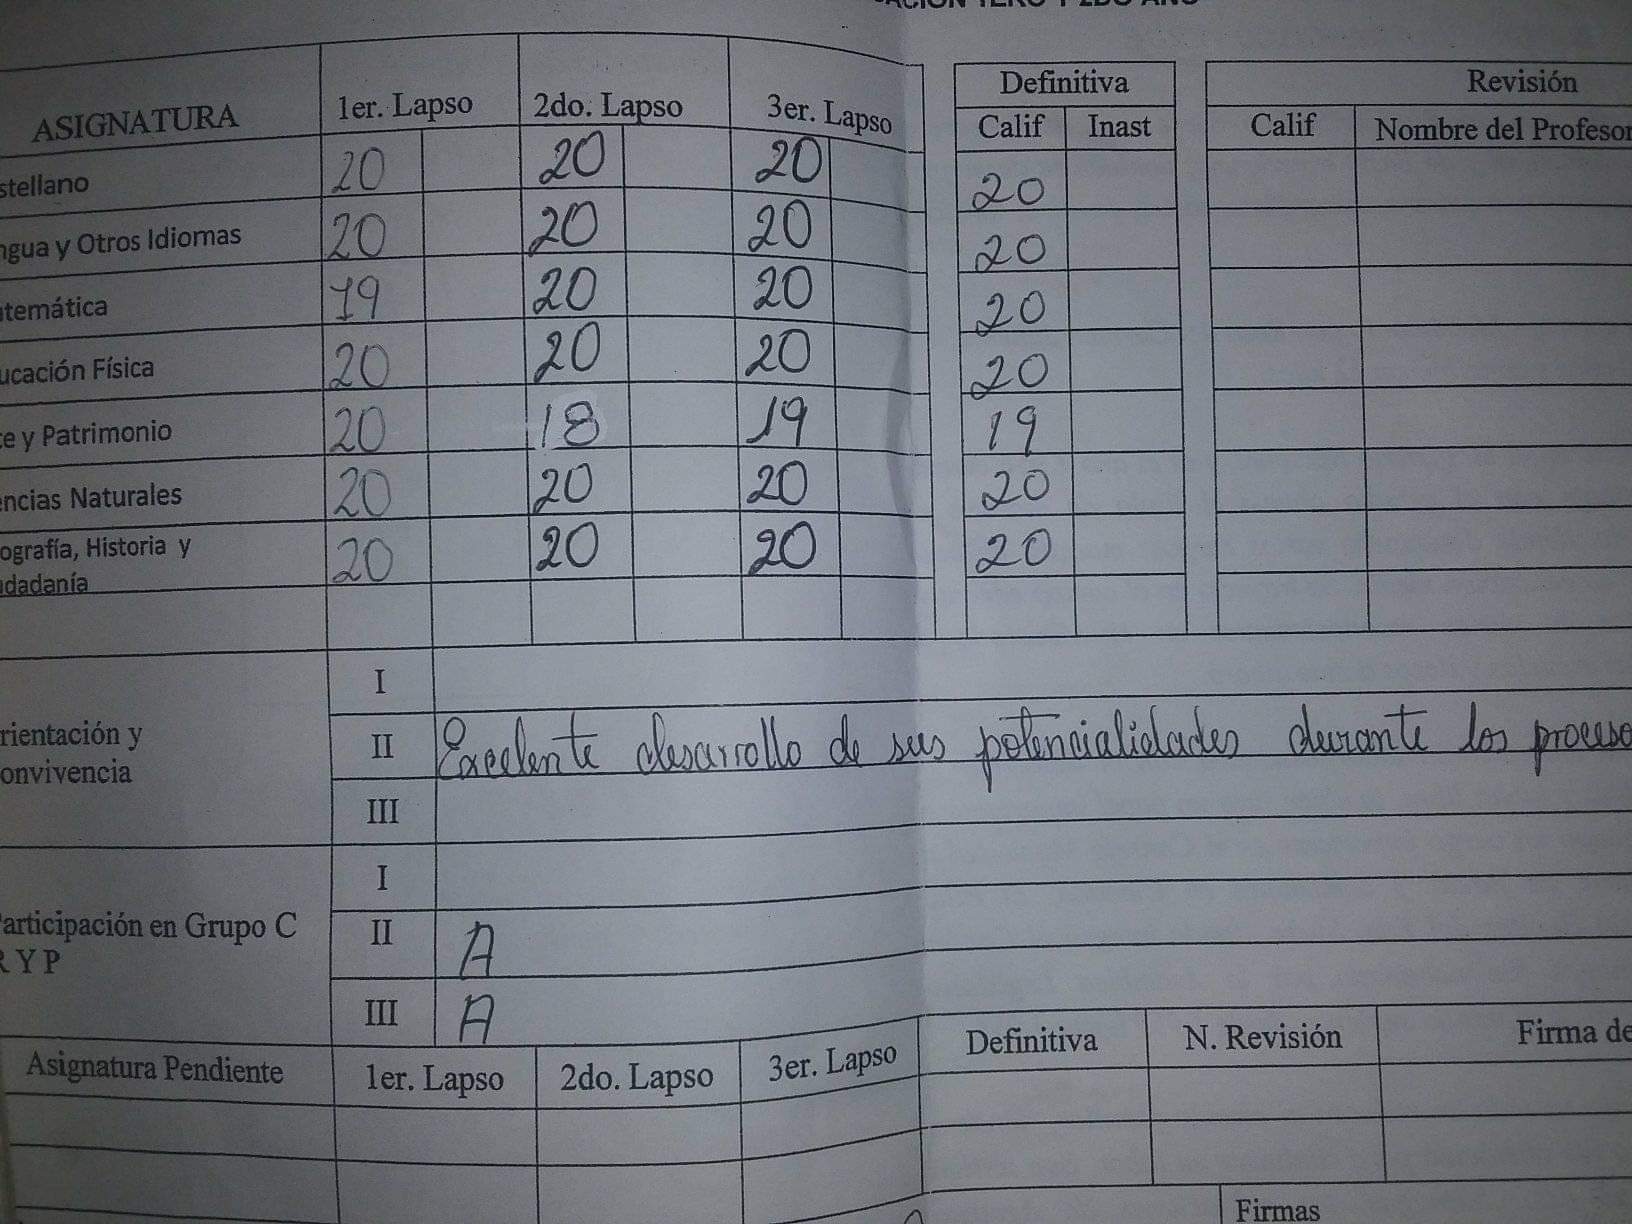 1ERO Y 2DO AÑO
Definitiva Revisión
ASIGNATURA 1er. Lapso 2do. Lapso 3er. Lapso Calif Inast Calif Nombre del Profesor
stellano 20 20 20 20
ngua y Otros Idiomas 20 20 20 20
temática 19 20 20 20
ucación Física 20 20 20 20
te y Patrimonio 20 18 19 19
encias Naturales 20 20 20 20
ografía, Historia y 20 20 20 20
dadanía
I
rientación y II Excelente desarrollo de sus potencialidades durante los proceso
onvivencia
III
I
articipación en Grupo C II A
R Y P
III A
Asignatura Pendiente 1er. Lapso 2do. Lapso 3er. Lapso Definitiva N. Revisión Firma de
Firmas